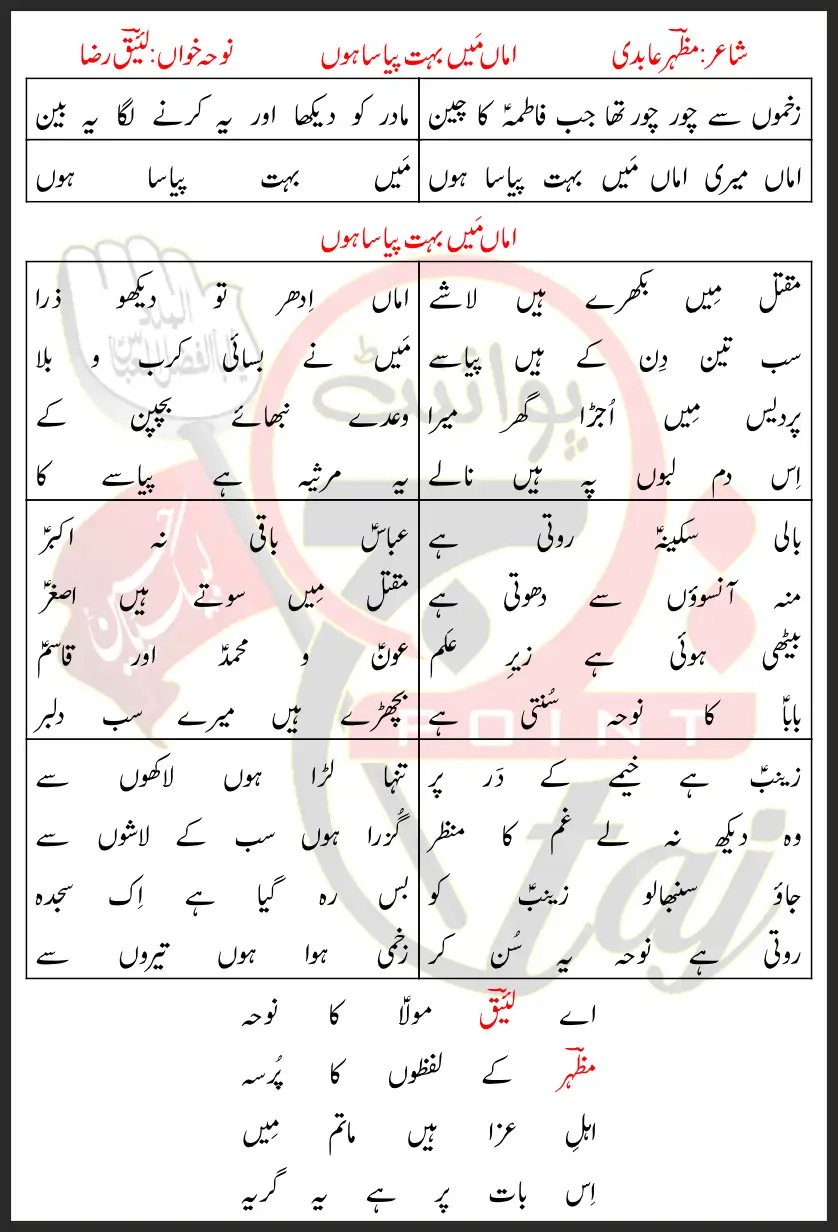 شاعر:مظہرؔ عابدی اماں مَیں بہت پیاسا ہوں نوحہ خواں:لئیقؔ رضا
زخموں سے چور چور تھا جب فاطمہؑ کا چین
مادر کو دیکھا اور یہ کرنے لگا یہ بین
اماں میری اماں مَیں بہت پیاسا ہوں
مَیں بہت پیاسا ہوں
اماں مَیں بہت پیاسا ہوں
مقتل مِیں بکھرے ہیں لاشے
سب تین دِن کے ہیں پیاسے
پردیس مِیں اُجڑا گھر میرا
اِس دم لبوں پہ ہیں نالے
اماں اِدھر تو دیکھو ذرا
مَیں نے بسائی کرب و بلا
وعدے نبھائے بچپن کے
یہ مرثیہ ہے پیاسے کا
بالی سکینہؑ روتی ہے
منہ آنسوؤں سے دھوتی ہے
بیٹھی ہوئی ہے زیرِ عَلم
باباؑ کا نوحہ سُنتی ہے
عباسؑ باقی نہ اکبرؑ
مقتل مِیں سوتے ہیں اصغرؑ
عونؑ و محمدؑ اور قاسمؑ
بچھڑے ہیں میرے سب دلبر
زینبؑ ہے خیمے کے دَر پر
وہ دیکھ نہ لے غم کا منظر
جاؤ سنبھالو زینبؑ کو
روتی ہے نوحہ یہ سُن کر
تنہا لڑا ہوں لاکھوں سے
گُزرا ہوں سب کے لاشوں سے
بس رہ گیا ہے اِک سجدہ
زخمی ہوا ہوں تیروں سے
اے لئیقؔ مولاؑ کا نوحہ
مظہرؔ کے لفظوں کا پُرسہ
اہلِ عزا ہیں ماتم مِیں
اِس بات پر ہے یہ گریہ
پوائنٹ
POINT
taj